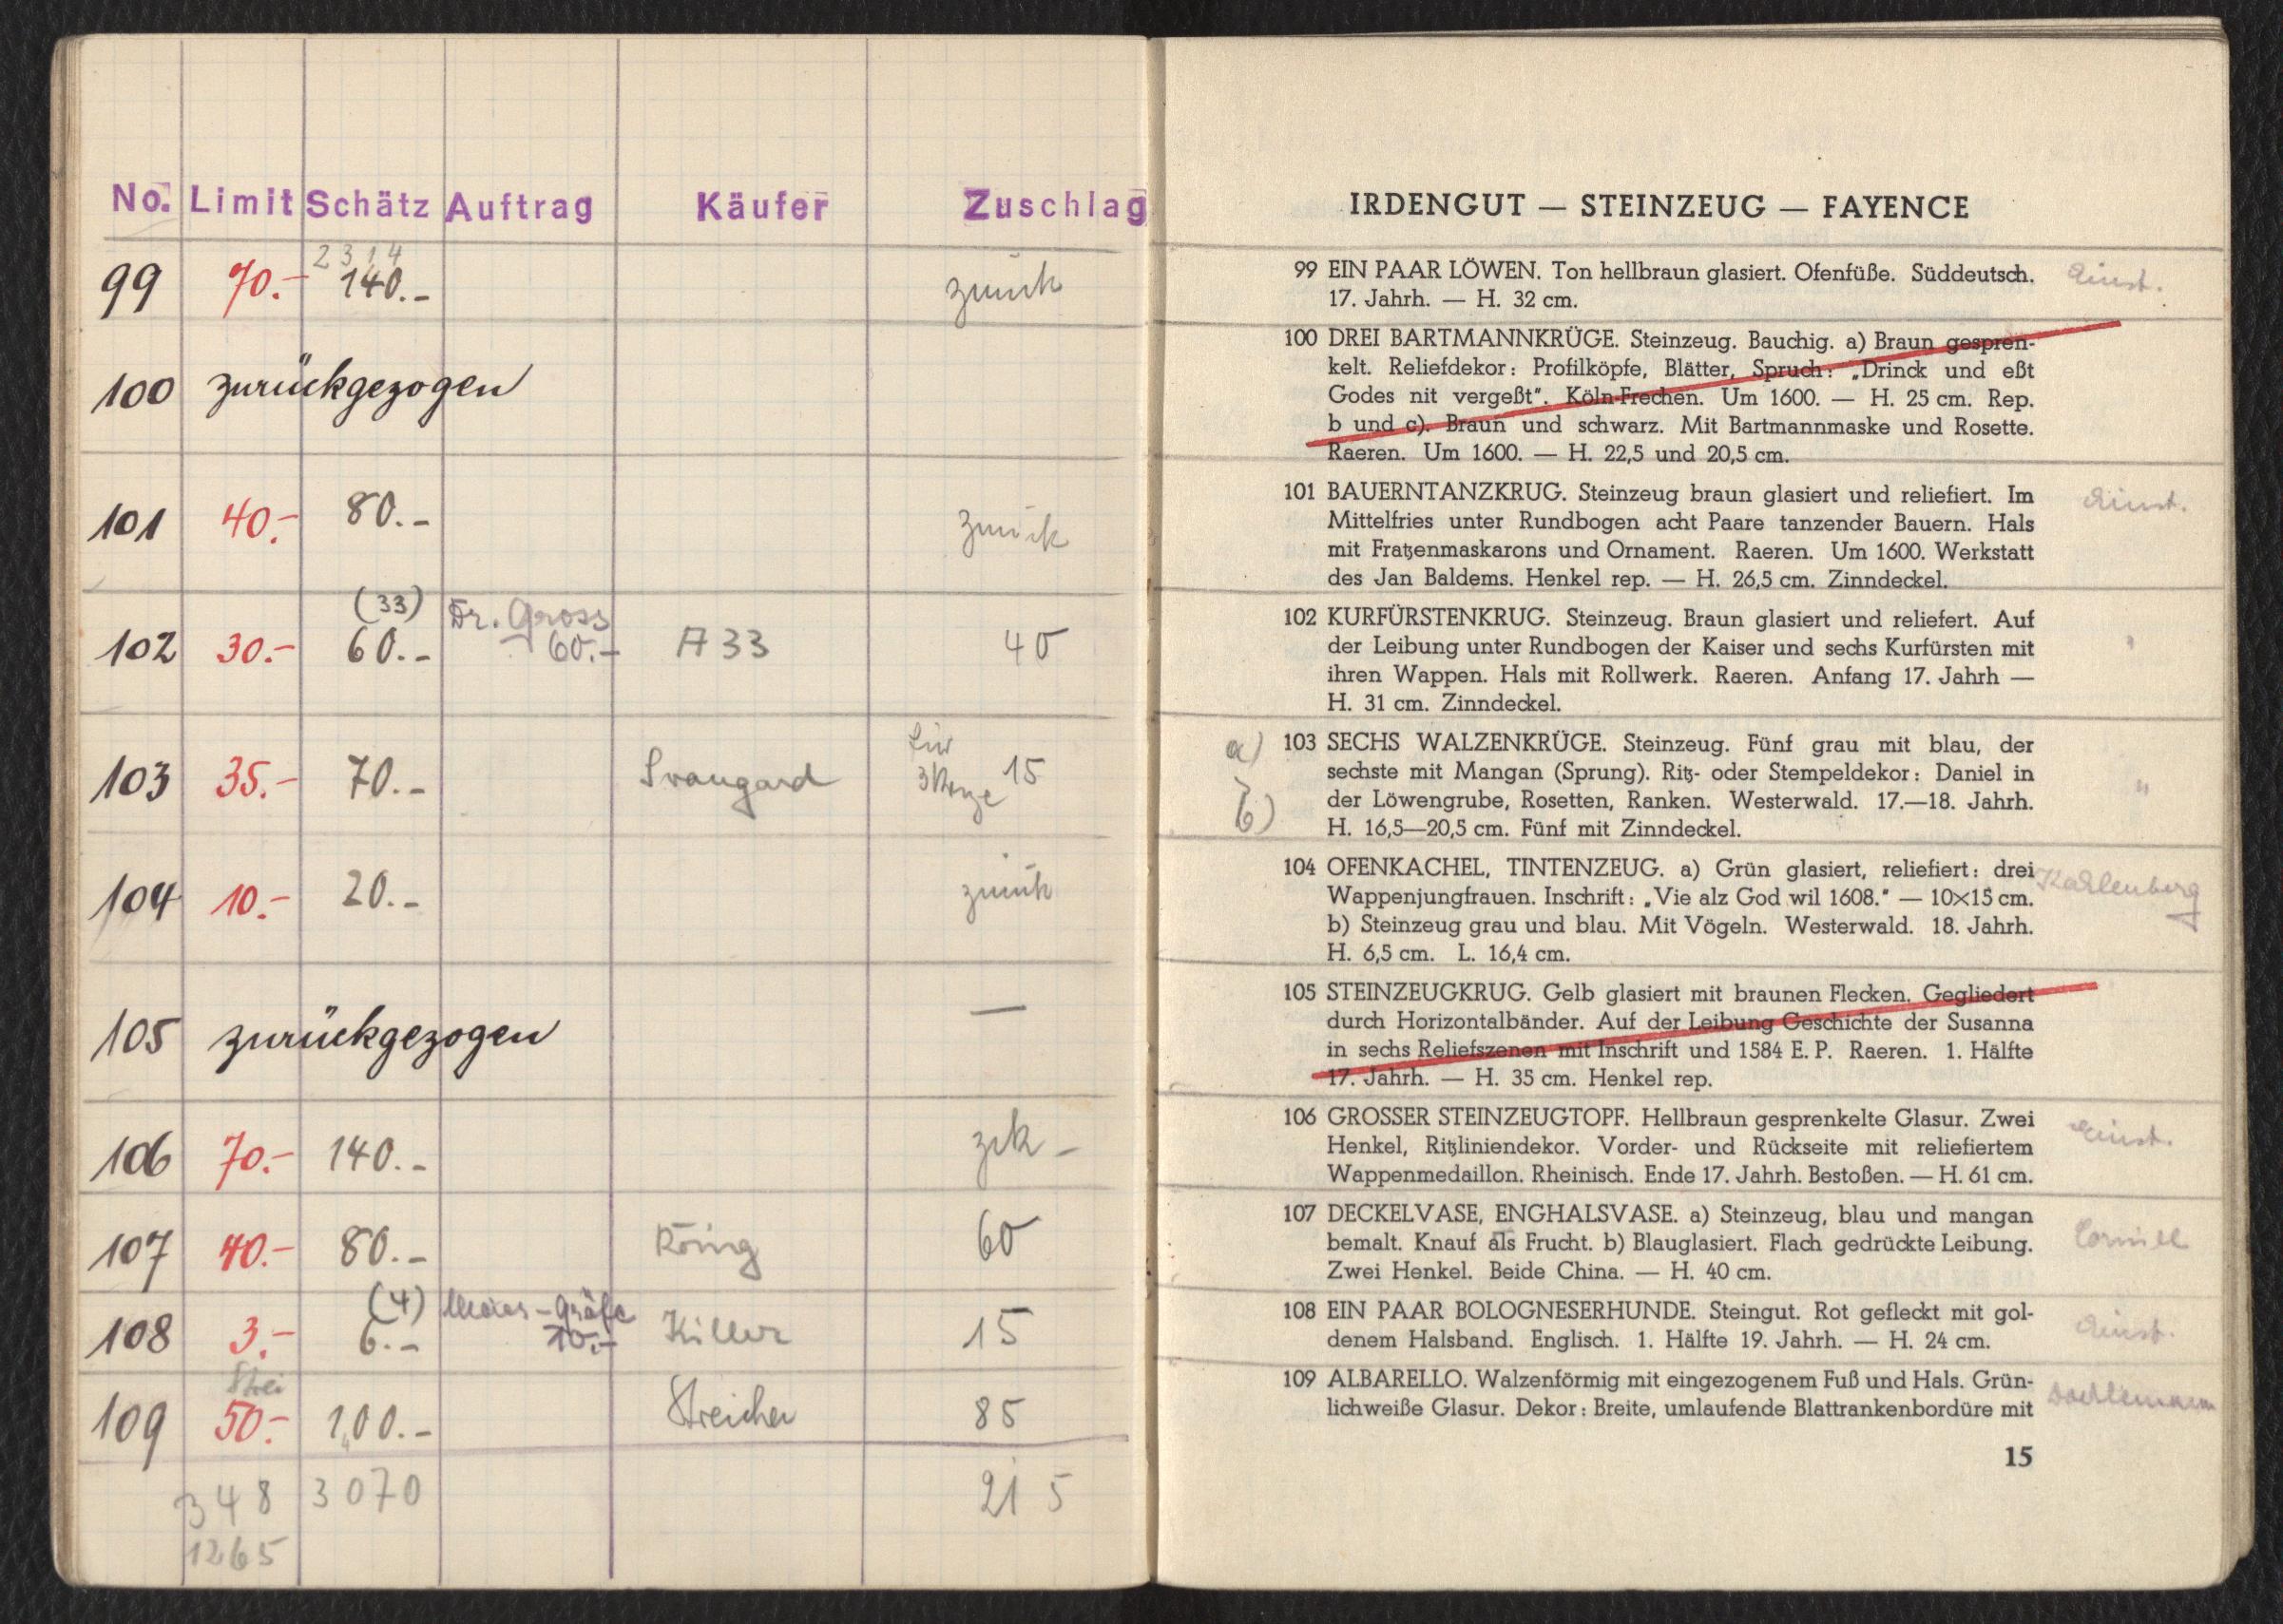 No. Limit Schätz Auftrag Käufer Zuschlag
2314
99 70.- 140.- zurück
100 zurückgezogen
101 40.- 80.- zurück
(33) Dr. Gross
102 30.- 60.- 60.- A 33 40
für
103 35.- 70.- 3 Krüge 15
104 10.- 20.- zurück
105 zurückgezogen —
106 70.- 140.- zrk -
107 40.- 80.- König 60
(4) Meier-Gräfe
108 3.- 6.- 10.- Killer 15
Strei
109 50.- 100.- Streicher 85
348 3070 215
1265
IRDENGUT — STEINZEUG — FAYENCE
99 EIN PAAR LÖWEN. Ton hellbraun glasiert. Ofenfüße. Süddeutsch.
17. Jahrh. — H. 32 cm.
100 DREI BARTMANNKRÜGE. Steinzeug. Bauchig. a) Braun gespren-
kelt. Reliefdekor: Profilköpfe, Blätter, Spruch: „Drinck und eßt
Godes nit vergeßt“. Köln-Frechen. Um 1600. — H. 25 cm. Rep.
b und c). Braun und schwarz. Mit Bartmannmaske und Rosette.
Raeren. Um 1600. — H. 22,5 und 20,5 cm.
101 BAUERNTANZKRUG. Steinzeug braun glasiert und reliefiert. Im
Mittelfries unter Rundbogen acht Paare tanzender Bauern. Hals
mit Fratzenmaskarons und Ornament. Raeren. Um 1600. Werkstatt
des Jan Baldems. Henkel rep. — H. 26,5 cm. Zinndeckel.
102 KURFÜRSTENKRUG. Steinzeug. Braun glasiert und reliefert. Auf
der Leibung unter Rundbogen der Kaiser und sechs Kurfürsten mit "
ihren Wappen. Hals mit Rollwerk. Raeren. Anfang 17. Jahrh —
H. 31 cm. Zinndeckel.
a) 103 SECHS WALZENKRÜGE. Steinzeug. Fünf grau mit blau, der
sechste mit Mangan (Sprung). Ritz- oder Stempeldekor: Daniel in "
b) der Löwengrube, Rosetten, Ranken. Westerwald. 17.—18. Jahrh.
H. 16,5—20,5 cm. Fünf mit Zinndeckel.
104 OFENKACHEL, TINTENZEUG. a) Grün glasiert, reliefiert: drei Kahlenberg
Wappenjungfrauen. Inschrift: „Vie alz God wil 1608.“ — 10×15 cm.
b) Steinzeug grau und blau. Mit Vögeln. Westerwald. 18. Jahrh.
H. 6,5 cm. L. 16,4 cm.
105 STEINZEUGKRUG. Gelb glasiert mit braunen Flecken. Gegliedert
durch Horizontalbänder. Auf der Leibung Geschichte der Susanna
in sechs Reliefszenen mit Inschrift und 1584 E. P. Raeren. 1. Hälfte
17. Jahrh. — H. 35 cm. Henkel rep.
106 GROSSER STEINZEUGTOPF. Hellbraun gesprenkelte Glasur. Zwei
Henkel, Ritzliniendekor. Vorder- und Rückseite mit reliefiertem
Wappenmedaillon. Rheinisch. Ende 17. Jahrh. Bestoßen. — H. 61 cm.
107 DECKELVASE, ENGHALSVASE. a) Steinzeug, blau und mangan
bemalt. Knauf als Frucht. b) Blauglasiert. Flach gedrückte Leibung.
Zwei Henkel. Beide China. — H. 40 cm.
108 EIN PAAR BOLOGNESERHUNDE. Steingut. Rot gefleckt mit gol-
denem Halsband. Englisch. 1. Hälfte 19. Jahrh. — H. 24 cm.
109 ALBARELLO. Walzenförmig mit eingezogenem Fuß und Hals. Grün-
lichweiße Glasur. Dekor: Breite, umlaufende Blattrankenbordüre mit
15